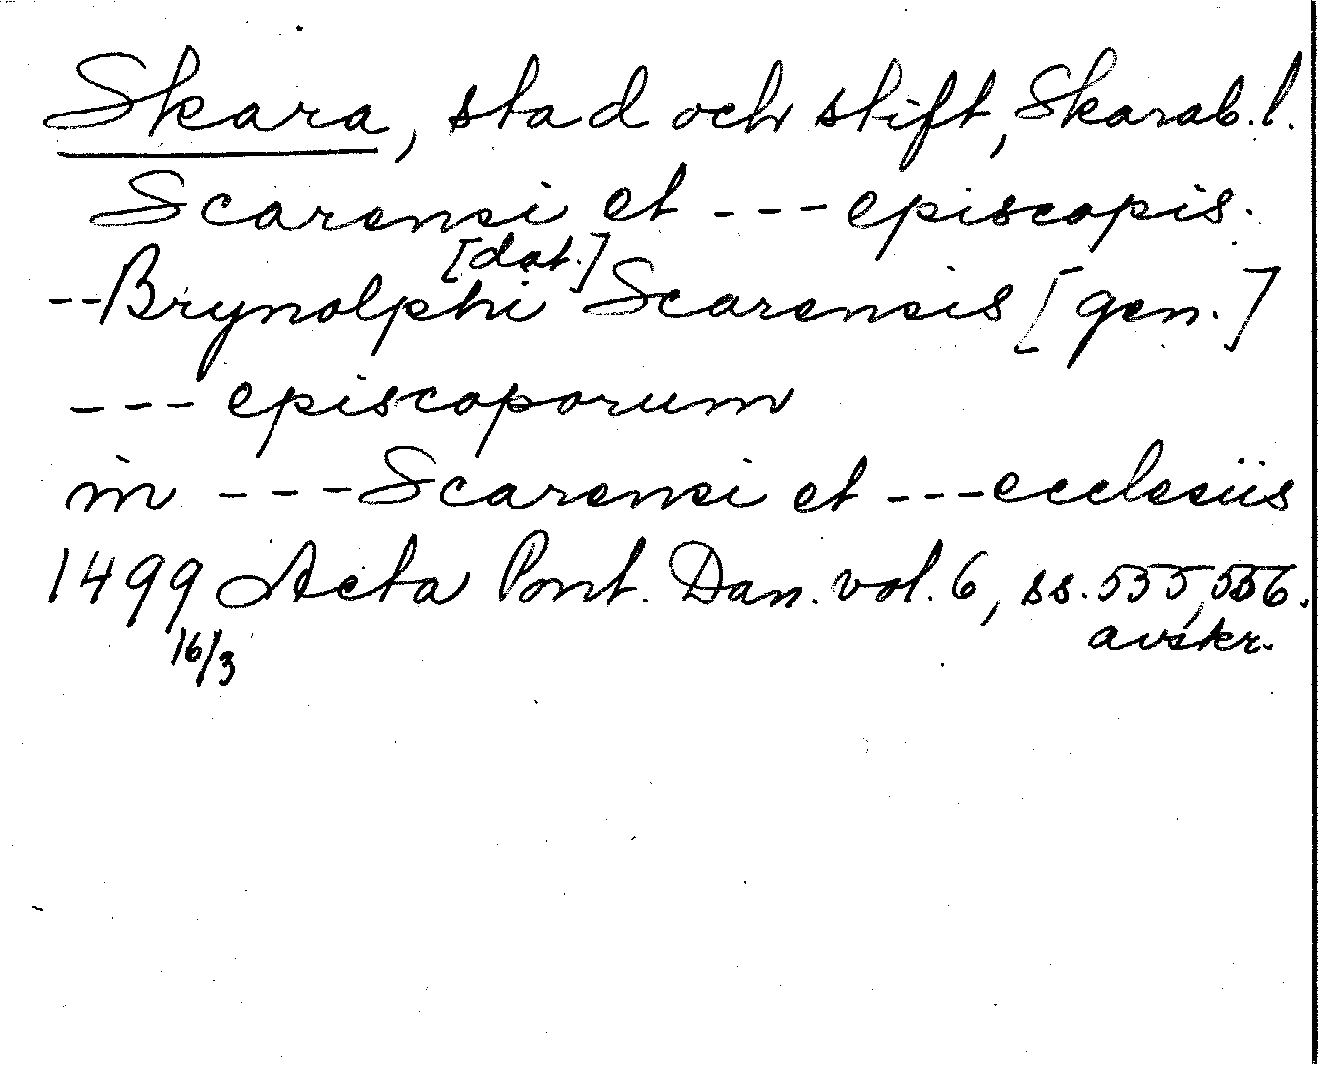 Skara, stad och stift, Skarab.l.
Scarensi et --- episcopis.
[dat.]
--Brynolphi Scarensis [gen.]
--- episcoporum
in --- Scarensi et --- ecclesiis
1499 Acta Pont. Dan. vol. 6, ss. 555, 556.
16/3 avskr.